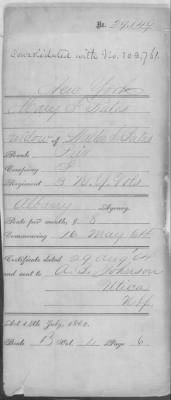 No. 29,147
Consolidated with No. 103,761.
New York
Mary
widow of
Rank
Company
Regiment 3 N.Y. Vols
Albany Agency.
Rate per month, $ 8
Commencing 16 May 64
Certificate dated 29 Aug 64
and sent to A. S. Johnson
Utica
N.Y.
Act 14th July, 1862.
Book B Vol. 4 Page 6.